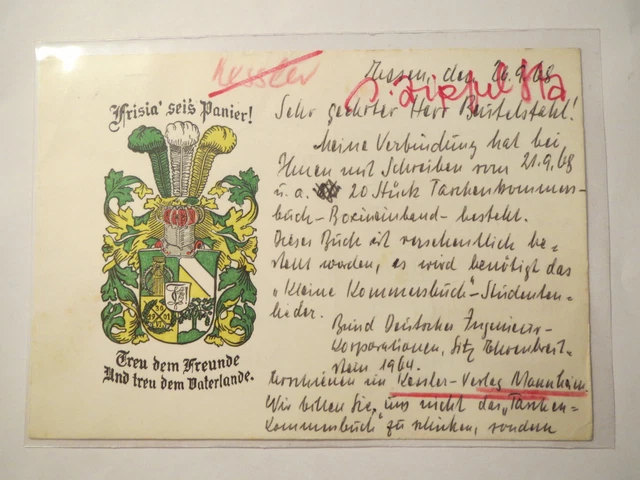 Kessler
Essen, den 26.9.68
Frisia' sei's Panier!
Sehr geehrter Herr Beutelstahl!
Meine Verbindung hat bei
Ihnen mit Schreiben vom 21.9.68
u.a. 20 Stück Taschenkommers-
buch - Boxineinband - bestellt.
Dieses Buch ist versehentlich be-
stellt worden, es wird benötigt das
"Kleine Kommersbuch" - Studenten-
lieder.
Bund Deutscher Ingenieur-
Korporationen, Sitz Ehrenbreit-
stein 1964.
Erschienen im Kessler-Verlag Mannheim.
Wir bitten Sie, uns nicht das "Taschen-
kommersbuch" zu schicken, sondern
Treu dem Freunde
Und treu dem Vaterlande.
19 01